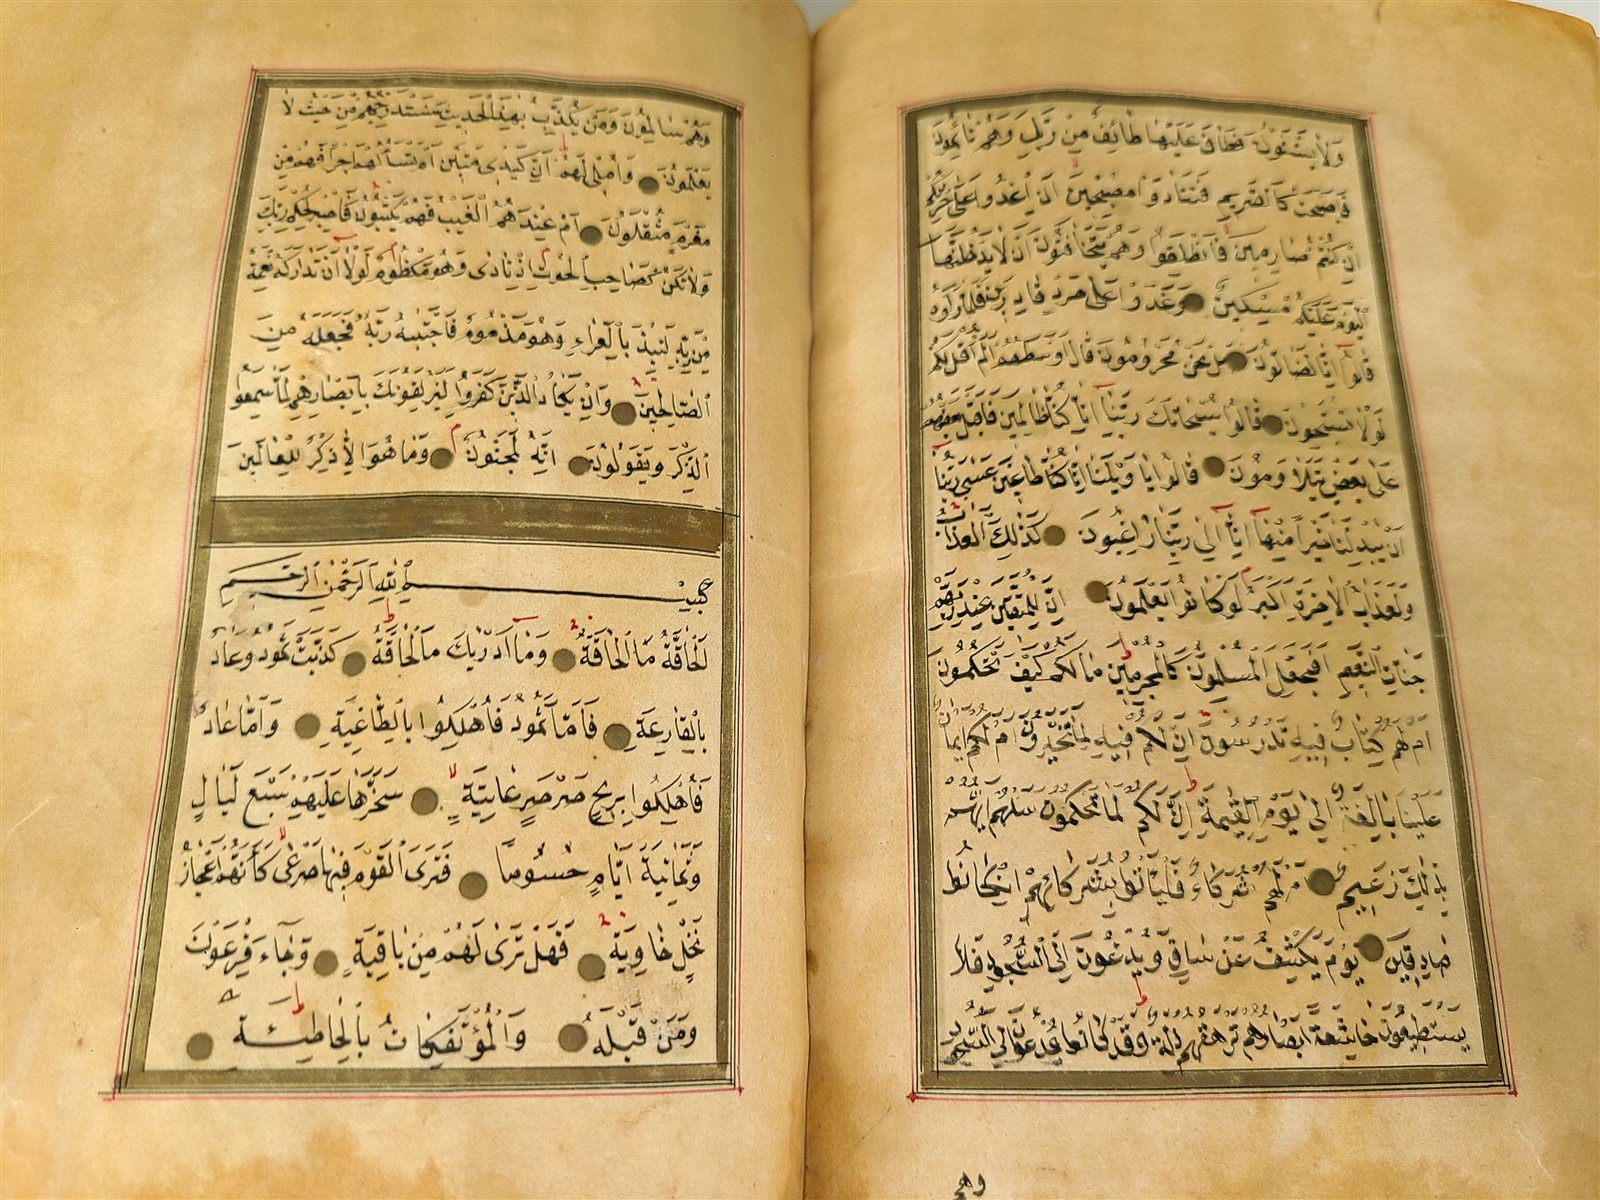 وَلَا يَسْتَثْنُونَ فَطَافَ عَلَيْهَا طَائِفٌ مِنْ رَبِّكَ وَهُمْ نَائِمُونَ
فَأَصْبَحَتْ كَالصَّرِيمِ فَتَنَادَوْا مُصْبِحِينَ أَنِ اغْدُوا عَلَى حَرْثِكُمْ
إِنْ كُنْتُمْ صَارِمِينَ فَانْطَلَقُوا وَهُمْ يَتَخَافَتُونَ أَنْ لَا يَدْخُلَنَّهَا
الْيَوْمَ عَلَيْكُمْ مِسْكِينٌ وَغَدَوْا عَلَى حَرْدٍ قَادِرِينَ فَلَمَّا رَأَوْهَا
قَالُوا إِنَّا لَضَالُّونَ بَلْ نَحْنُ مَحْرُومُونَ قَالَ أَوْسَطُهُمْ أَلَمْ أَقُلْ لَكُمْ
لَوْلَا تُسَبِّحُونَ قَالُوا سُبْحَانَكَ رَبَّنَا إِنَّا كُنَّا ظَالِمِينَ فَأَقْبَلَ بَعْضُهُمْ
عَلَى بَعْضٍ يَتَلَاوَمُونَ قَالُوا يَا وَيْلَنَا إِنَّا كُنَّا طَاغِينَ عَسَى رَبُّنَا
أَنْ يُبْدِلَنَا خَيْرًا مِنْهَا إِنَّا إِلَى رَبِّنَا رَاغِبُونَ كَذَلِكَ الْعَذَابُ
وَلَعَذَابُ الْآخِرَةِ أَكْبَرُ لَوْ كَانُوا يَعْلَمُونَ إِنَّ لِلْمُتَّقِينَ عِنْدَ رَبِّهِمْ
جَنَّاتِ النَّعِيمِ أَفَنَجْعَلُ الْمُسْلِمِينَ كَالْمُجْرِمِينَ مَا لَكُمْ كَيْفَ تَحْكُمُونَ
أَمْ لَكُمْ كِتَابٌ فِيهِ تَدْرُسُونَ إِنَّ لَكُمْ فِيهِ لَمَا تَخَيَّرُونَ أَمْ لَكُمْ أَيْمَانٌ
عَلَيْنَا بَالِغَةٌ إِلَى يَوْمِ الْقِيمَةِ إِنَّ لَكُمْ لَمَا تَحْكُمُونَ سَلْهُمْ أَيُّهُمْ
بِذَلِكَ زَعِيمٌ أَمْ لَهُمْ شُرَكَاءُ فَلْيَأْتُوا بِشُرَكَائِهِمْ إِنْ كَانُوا
صَادِقِينَ يَوْمَ يُكْشَفُ عَنْ سَاقٍ وَيُدْعَوْنَ إِلَى السُّجُودِ فَلَا
يَسْتَطِيعُونَ خَاشِعَةً أَبْصَارُهُمْ تَرْهَقُهُمْ ذِلَّةٌ وَقَدْ كَانُوا يُدْعَوْنَ إِلَى السُّجُودِ
وهم
وَهُمْ سَالِمُونَ وَمَنْ يُكَذِّبُ بِهَذَا الْحَدِيثِ سَنَسْتَدْرِجُهُمْ مِنْ حَيْثُ لَا
يَعْلَمُونَ وَأُمْلِي لَهُمْ إِنَّ كَيْدِي مَتِينٌ أَمْ تَسْأَلُهُمْ أَجْرًا فَهُمْ مِنْ
مَغْرَمٍ مُثْقَلُونَ أَمْ عِنْدَهُمُ الْغَيْبُ فَهُمْ يَكْتُبُونَ فَاصْبِرْ لِحُكْمِ رَبِّكَ
وَلَا تَكُنْ كَصَاحِبِ الْحُوتِ إِذْ نَادَى وَهُوَ مَكْظُومٌ لَوْلَا أَنْ تَدَارَكَهُ نِعْمَةٌ
مِنْ رَبِّهِ لَنُبِذَ بِالْعَرَاءِ وَهُوَ مَذْمُومٌ فَاجْتَبَاهُ رَبُّهُ فَجَعَلَهُ مِنَ
الصَّالِحِينَ وَإِنْ يَكَادُ الَّذِينَ كَفَرُوا لَيُزْلِقُونَكَ بِأَبْصَارِهِمْ لَمَّا سَمِعُوا
الذِّكْرَ وَيَقُولُونَ إِنَّهُ لَمَجْنُونٌ وَمَا هُوَ إِلَّا ذِكْرٌ لِلْعَالَمِينَ
بِسْمِ اللَّهِ الرَّحْمَنِ الرَّحِيمِ
اَلْحَاقَّةُ مَا الْحَاقَّةُ وَمَا أَدْرَيكَ مَا الْحَاقَّةُ كَذَّبَتْ ثَمُودُ وَعَادٌ
بِالْقَارِعَةِ فَأَمَّا ثَمُودُ فَأُهْلِكُوا بِالطَّاغِيَةِ وَأَمَّا عَادٌ
فَأُهْلِكُوا بِرِيحٍ صَرْصَرٍ عَاتِيَةٍ سَخَّرَهَا عَلَيْهِمْ سَبْعَ لَيَالٍ
وَثَمَانِيَةَ أَيَّامٍ حُسُومًا فَتَرَى الْقَوْمَ فِيهَا صَرْعَى كَأَنَّهُمْ أَعْجَازُ
نَخْلٍ خَاوِيَةٍ فَهَلْ تَرَى لَهُمْ مِنْ بَاقِيَةٍ وَجَاءَ فِرْعَوْنُ
وَمَنْ قَبْلَهُ وَالْمُؤْتَفِكَاتُ بِالْخَاطِئَةِ